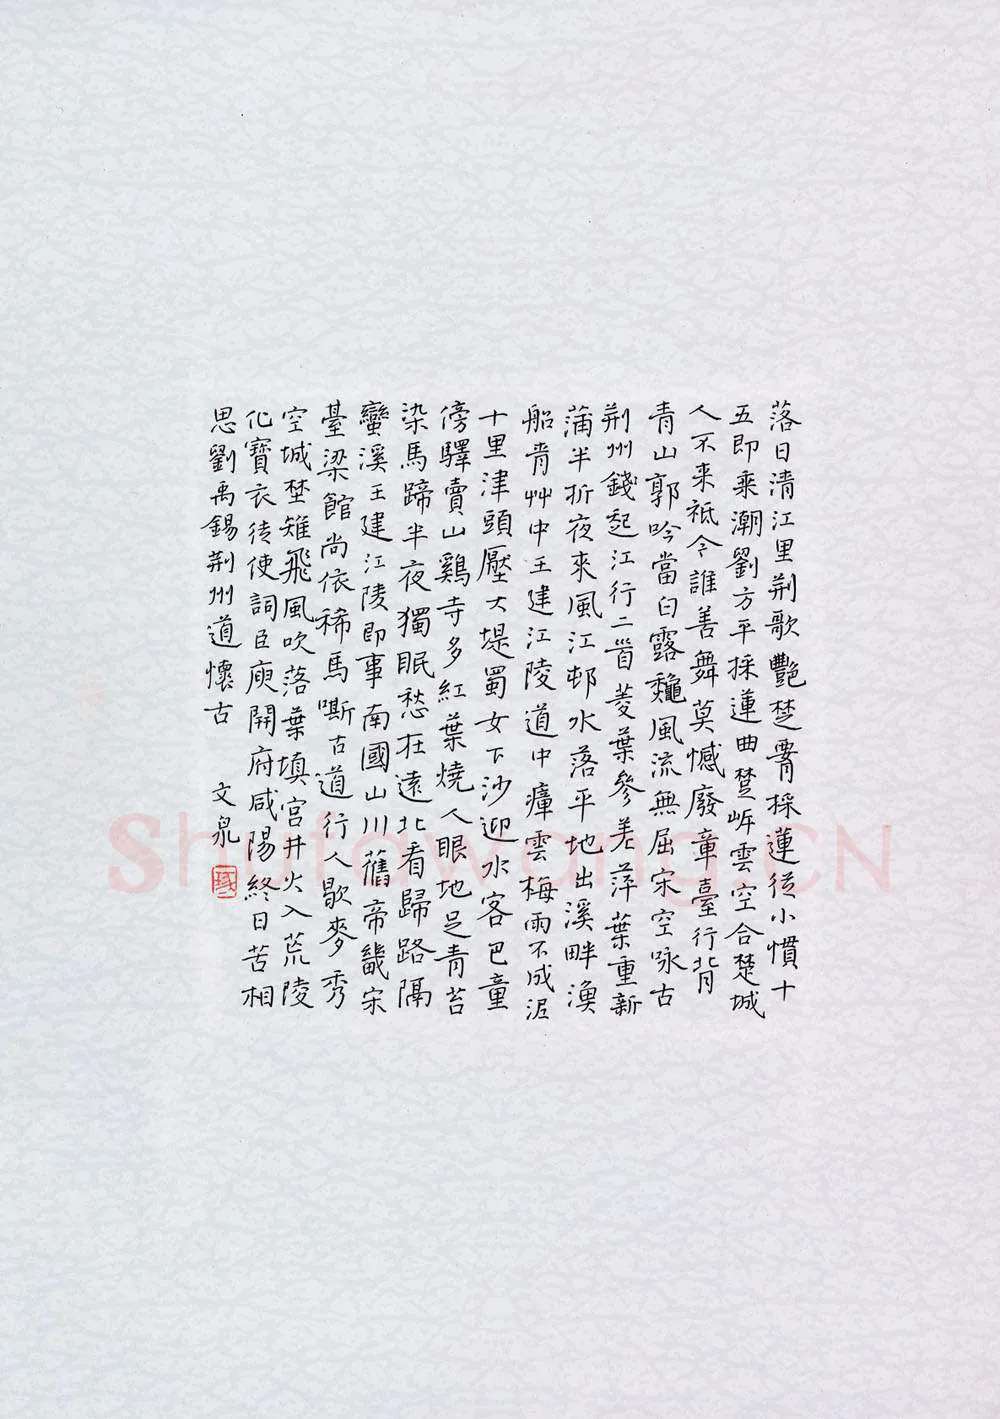 落日清江里荊歌艷楚腰採蓮從小慣十
五即乘潮劉方平採蓮曲楚岸雲空合楚城
人不来祗今誰善舞莫憾廢章臺行背
青山郭吟當白露龝風流無屈宋空咏古
荊州錢起江行二首菱葉參差萍葉重新
蒲半折夜來風江邨水落平地出溪畔漁
船青艸中王建江陵道中瘴雲梅雨不成泥
十里津頭壓大堤蜀女下沙迎水客巴童
傍驛賣山鷄寺多紅葉燒人眼地足青苔
染馬蹄半夜獨眠愁在遠北看歸路隔
蠻溪王建江陵即事南國山川舊帝畿宋
臺梁館尚依稀馬嘶古道行人歇麥秀
空城埜雉飛風吹落葉填宮井火入荒陵
化寶衣徒使詞臣庾開府咸陽終日苦相
思劉禹錫荊州道懷古 文泉
Shufawang.CN